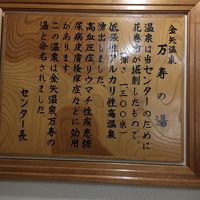 金矢温泉
万寿の湯
温泉は当センターのために
花巻市が掘削したもので、
(深さ一三〇〇米)
低張性アルカリ性高温泉
湧出しました。
高血圧症リウマチ性疾患糖
尿病皮膚掻痒症などに効用
があります。
この温泉は金矢温泉万寿の
湯と命名されました。
センター長